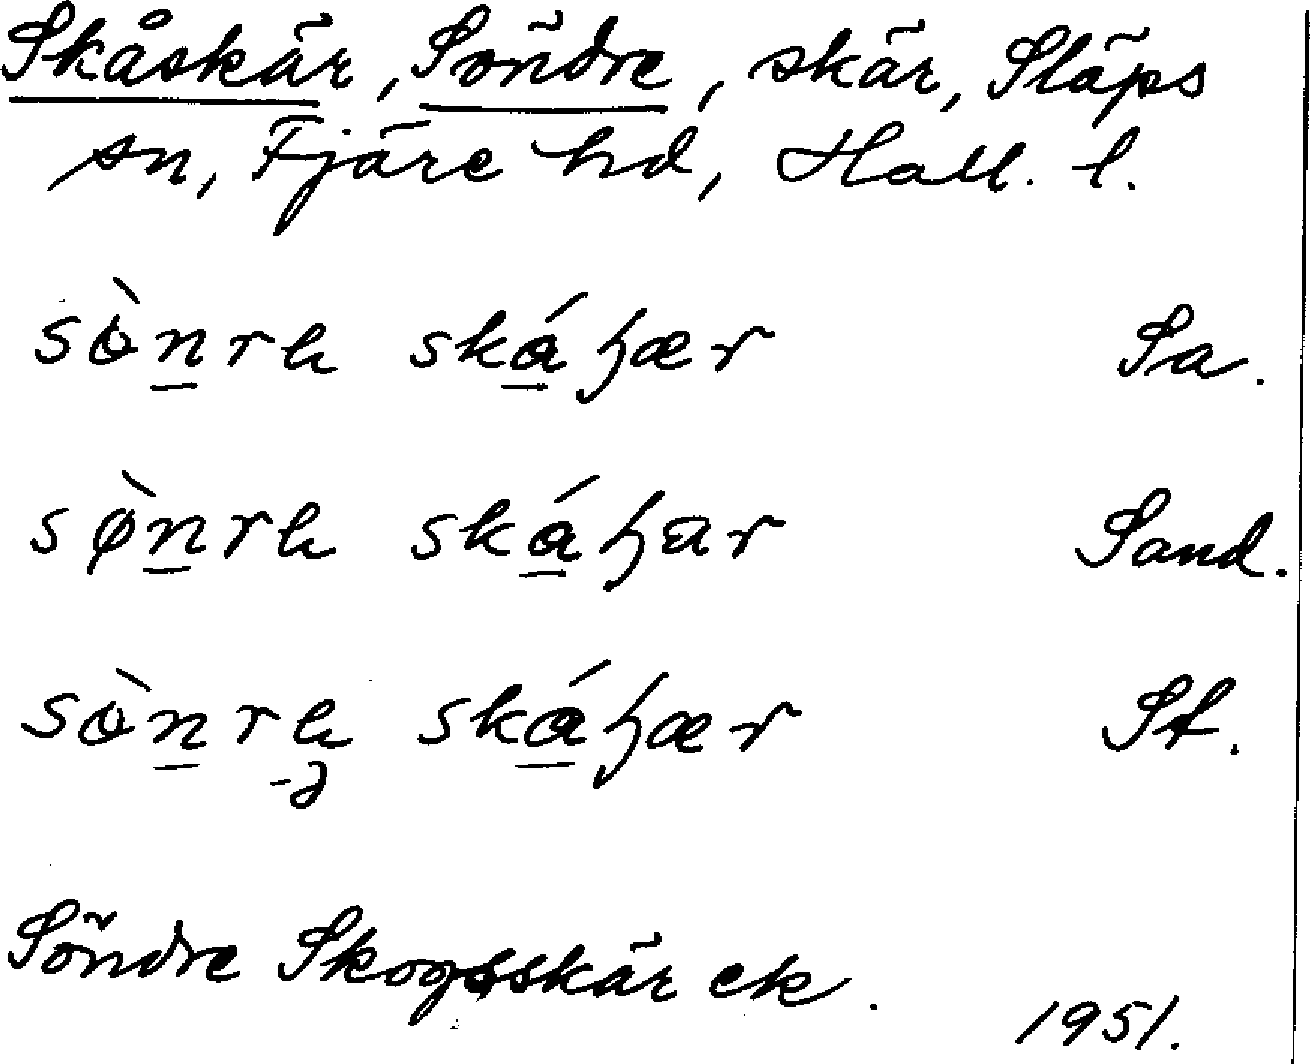 Skåskär, Söndre, skär, Släps
sn, Fjäre hd, Hall. l.
sò̀nre skáɧær Sa.
sø̀nre skáɧar Sand.
sònre skáɧær St.
-ə
Söndre Skogsskär ek.
1951.